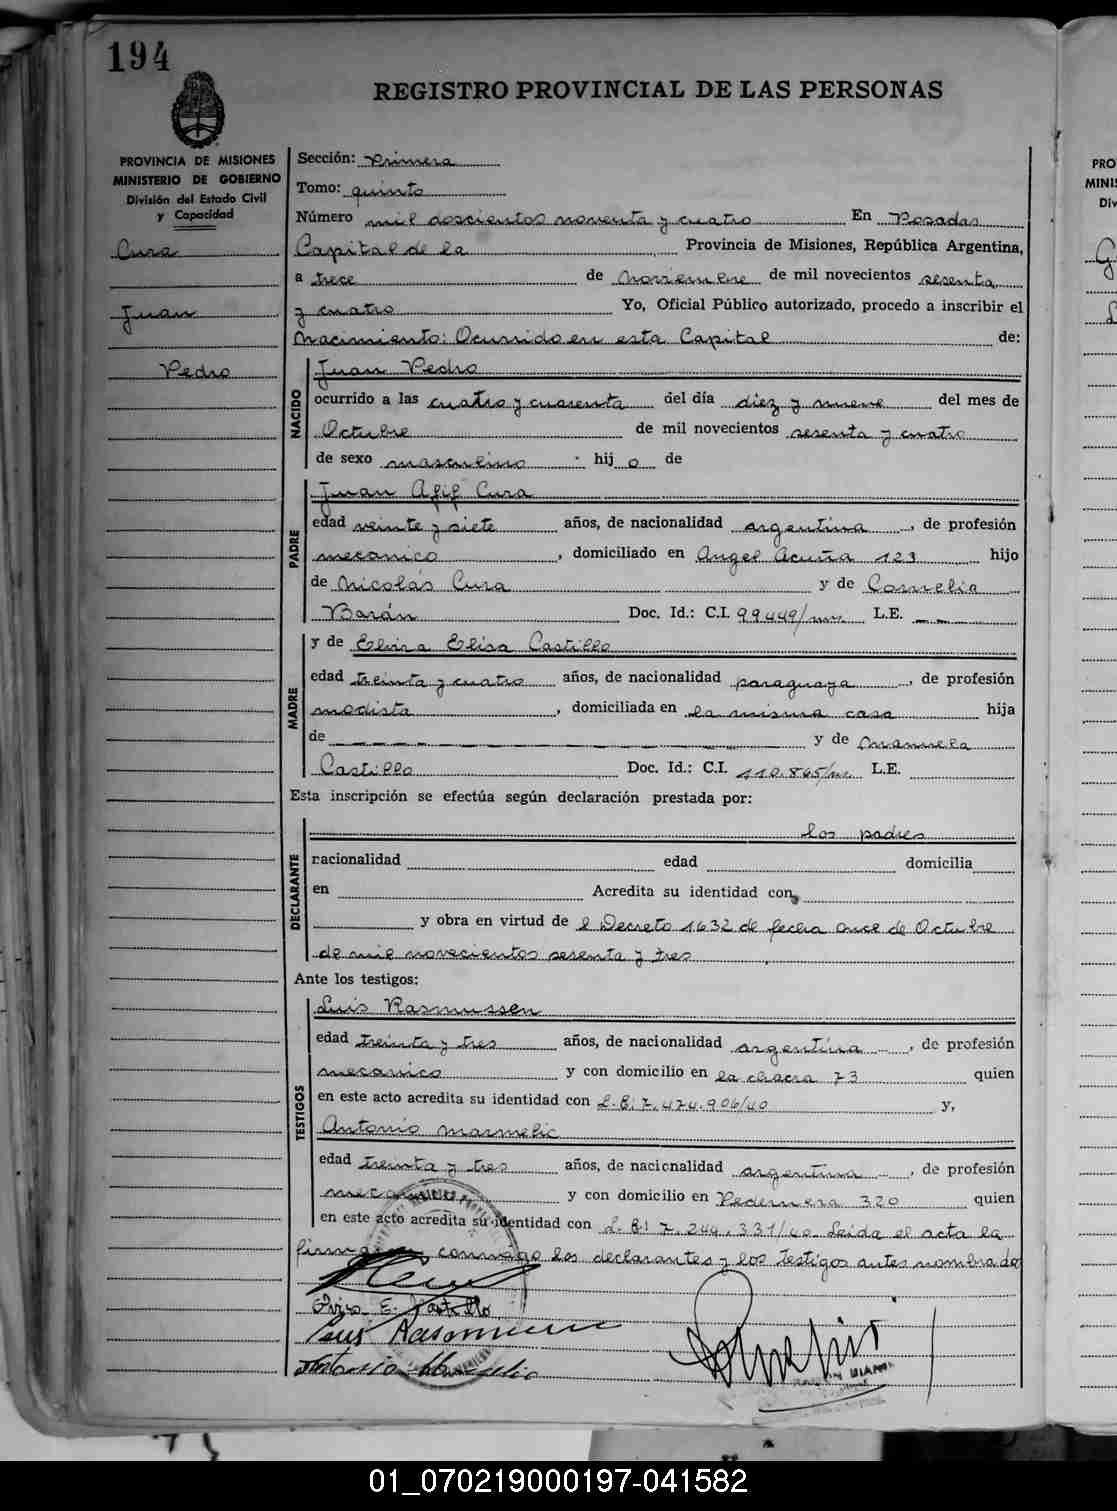 194
REGISTRO PROVINCIAL DE LAS PERSONAS
PROVINCIA DE MISIONES
MINISTERIO DE GOBIERNO
División del Estado Civil
y Capacidad
Cura
Juan
Pedro
Sección: Primera
Tomo: quinto
Número mil doscientos noventa y cuatro En Posadas
Capital de la Provincia de Misiones, República Argentina,
a trece de Noviembre de mil novecientos sesenta
y cuatro Yo, Oficial Público autorizado, procedo a inscribir el
Nacimiento: Ocurrido en esta Capital de:
NACIDO
Juan Pedro
ocurrido a las cuatro y cuarenta del día diez y nueve del mes de
Octubre de mil novecientos sesenta y cuatro
de sexo masculino hijo de
PADRE
Juan Afif Cura
edad veinte y siete años, de nacionalidad argentina, de profesión
mecanico, domiciliado en Angel Acuña 123 hijo
de Nicolás Cura y de Cornelia
Barán Doc. Id.: C.I. 99449/mns. L.E. — —
MADRE
y de Elvira Elisa Castillo
edad treinta y cuatro años, de nacionalidad paraguaya, de profesión
modista, domiciliada en la misma casa hija
de — — — y de Manuela
Castillo Doc. Id.: C.I. 110.865/ms. L.E.
Esta inscripción se efectúa según declaración prestada por:
DECLARANTE
los padres
nacionalidad edad domicilia
en Acredita su identidad con
y obra en virtud de l Decreto 1632 de fecha once de Octubre
de mil novecientos sesenta y tres
Ante los testigos:
TESTIGOS
Luis Rasmussen
edad treinta y tres años, de nacionalidad argentina, de profesión
mecanico y con domicilio en la chacra 73 quien
en este acto acredita su identidad con L.E: 7.474.906/40 y,
Antonio Marmelic
edad treinta y tres años, de nacionalidad argentina, de profesión
mecanico y con domicilio en Pedernera 320 quien
en este acto acredita su identidad con L.E: 7.244.331/40. Leida el acta la
firman conmigo los declarantes y los testigos antes nombrados
Elvira E. Castillo
Luis Rasmussen
Antonio Marmelic
PRO
MINIS
Div
01_070219000197-041582